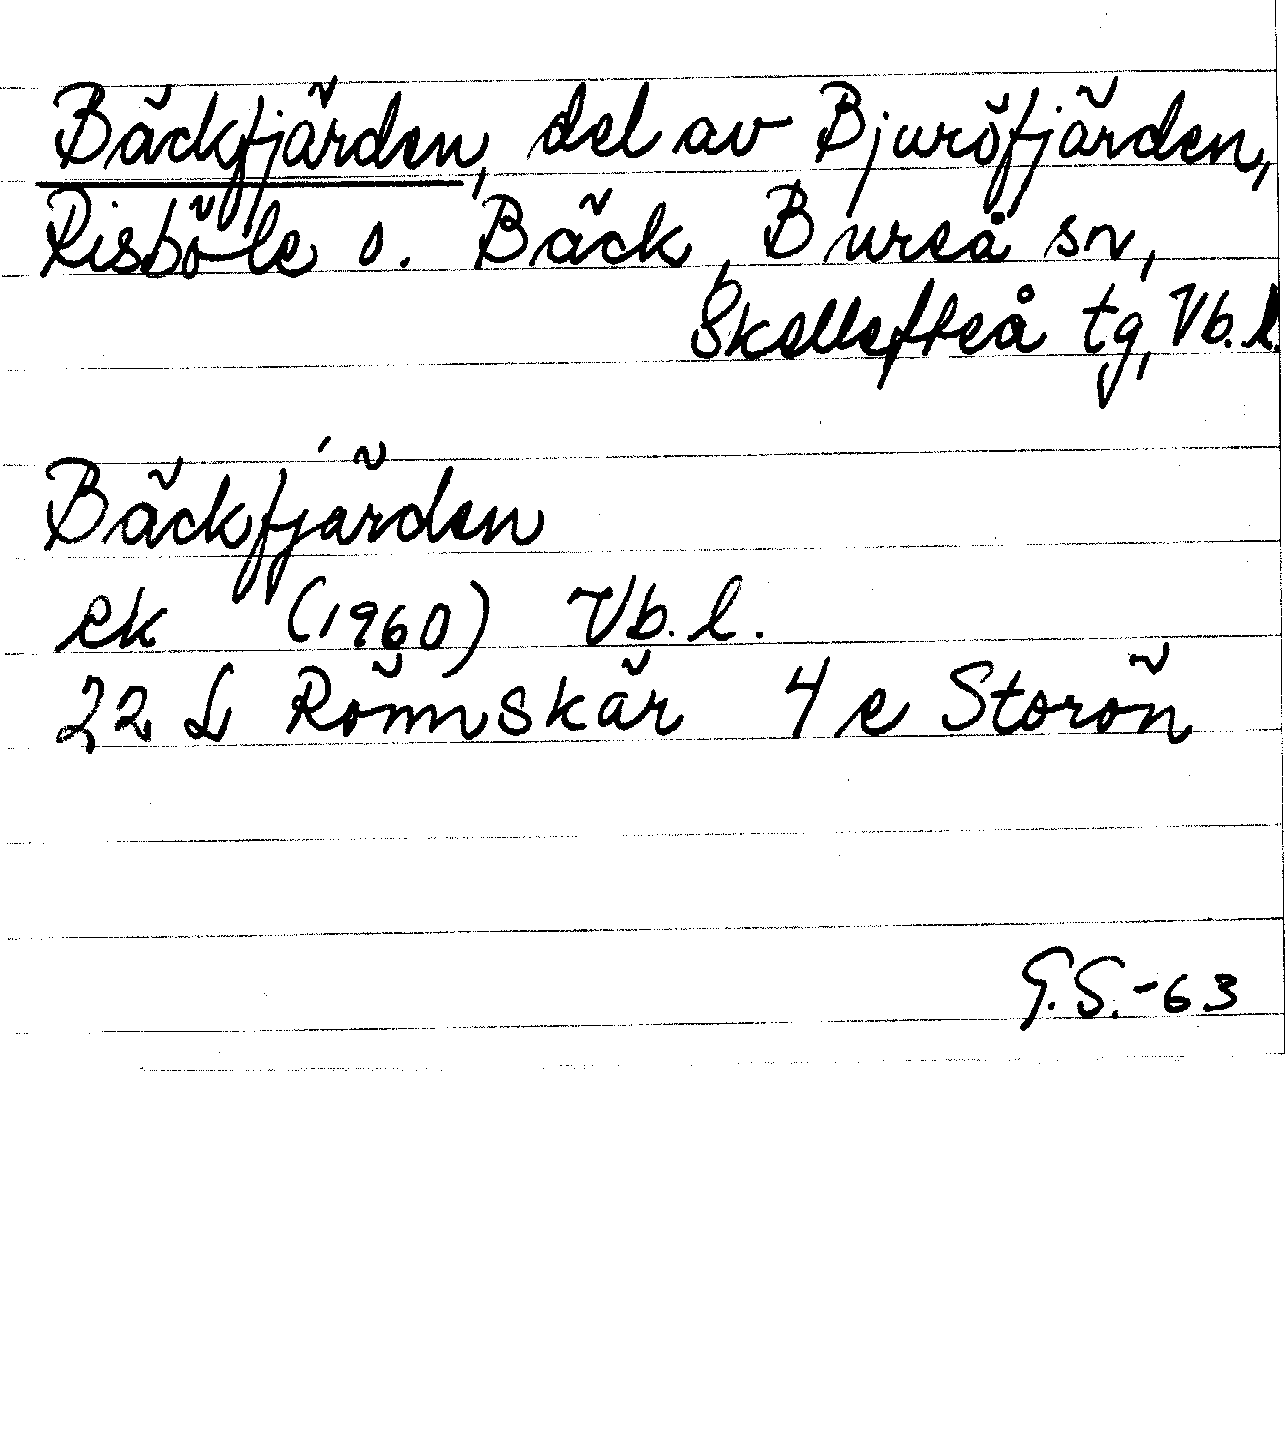 Bäckfjärden, del av Bjuröfjärden,
Risböle o. Bäck, Bureå sn,
Skellefteå tg, Vb. l.
Bäckfjärden
ek (1960) Vb. l.
22 L Rönnskär 4 e Storön
G.S.-63